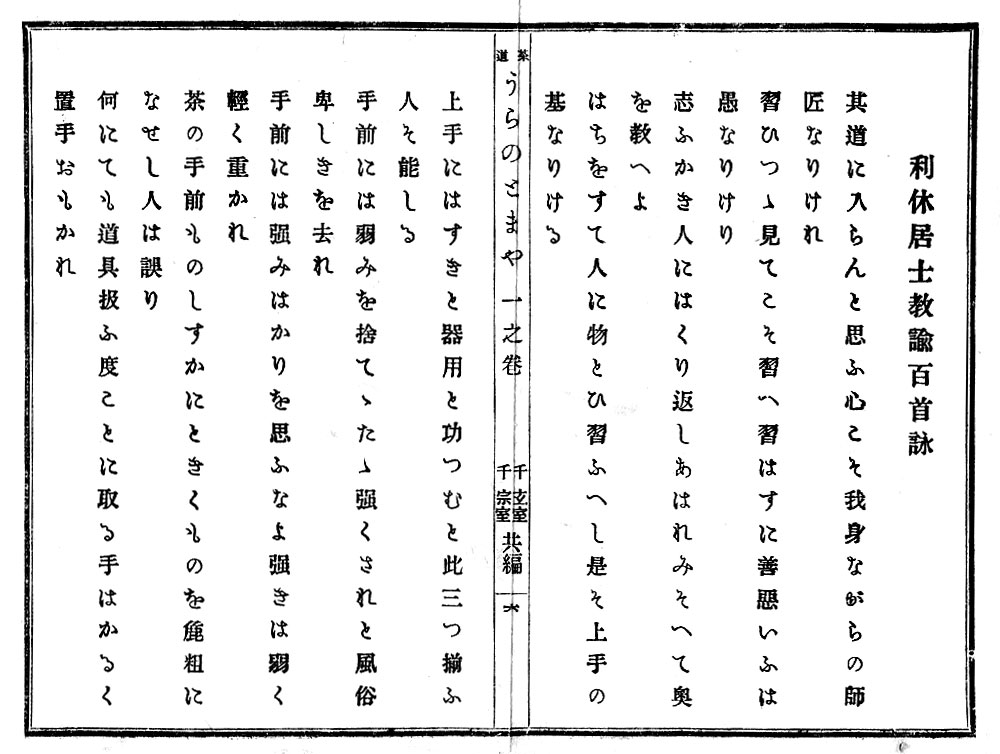 利休居士教諭百首詠
其道に入らんと思ふ心こそ我身ながらの師
匠なりけれ
習ひつゝ見てこそ習へ習はすに善惡いふは
愚なりけり
志ふかき人にはくり返しあはれみそへて奥
を教へよ
はちをすて人に物とひ習ふへし是そ上手の
基なりける
茶道
うらのとまや一之卷
千玄室
千宗室
共編
六
上手にはすきと器用と功つむと此三つ揃ふ
人そ能しる
手前には弱みを捨てゝたゝ强くされと風俗
卑しきを去れ
手前には强みはかりを思ふなよ强きは弱く
輕く重かれ
茶の手前ものしすかにときくものを麁粗に
なせし人は誤り
何にても道具扱ふ度ことに取る手はかるく
置手おもかれ